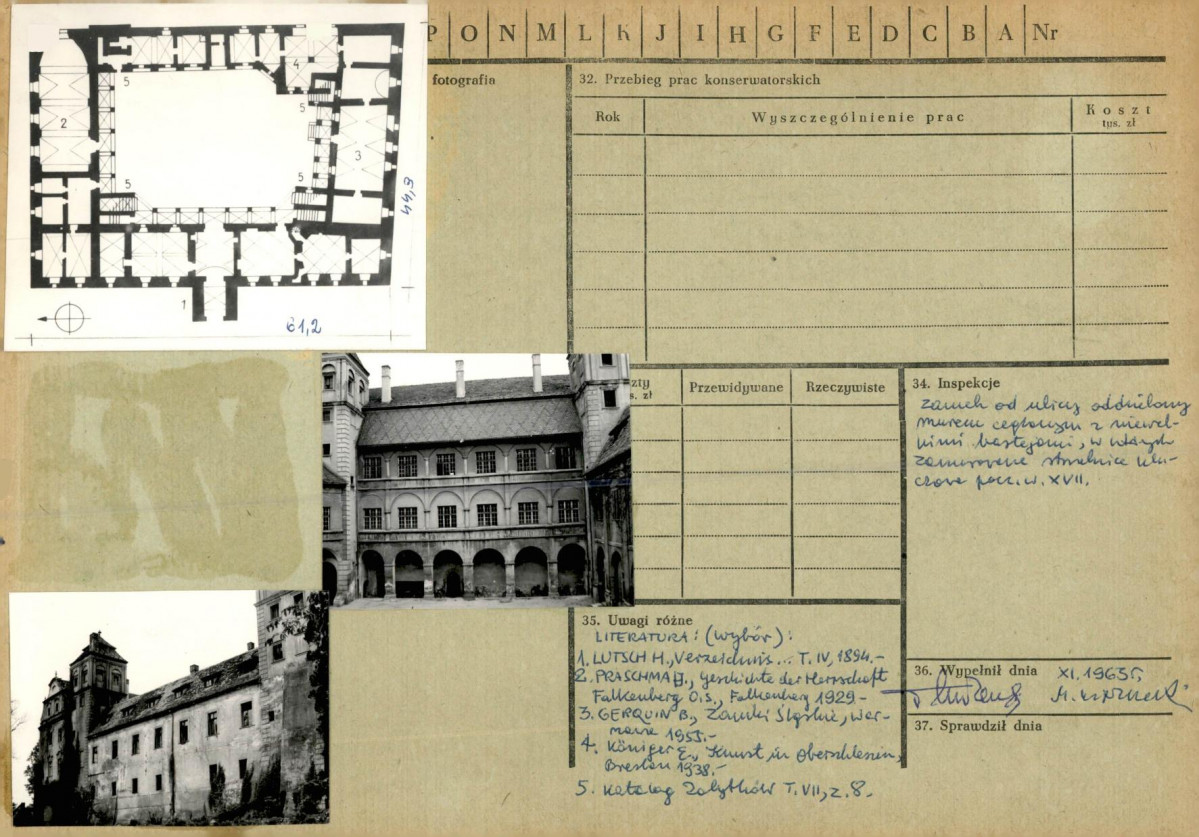 P O N M L K J I H G F E D C B A Nr
fotografia
32. Przebieg prac konserwatorskich
Rok
Wyszczególnienie prac
Koszt
tys. zł
5
4
2
5
3
5
5
44,3
1
61,2
zty
s. zł
Przewidywane
Rzeczywiste
34. Inspekcje
Zamek od ulicy oddzielony
murem ceglanym z niewel-
kimi bastejami, w których
zamurowane strzelnice klu-
czowe pocz. w. XVII.
35. Uwagi różne
LITERATURA: (wybór):
1. LUTSCH H., Verzeichnis... T. IV, 1894.-
2. PRASCHMA H., Geschichte der Herrschaft
Falkenberg O.S., Falkenberg 1929-
3. GERQUIN B., Zamki Śląskie, War-
szawa 1955.-
4. Königer E., Kunst in Oberschlesien,
Breslau 1938.-
5. Katalog Zabytków T. VII, z. 8.-
36. Wypełnił dnia
XI. 1963 r.
37. Sprawdził dnia